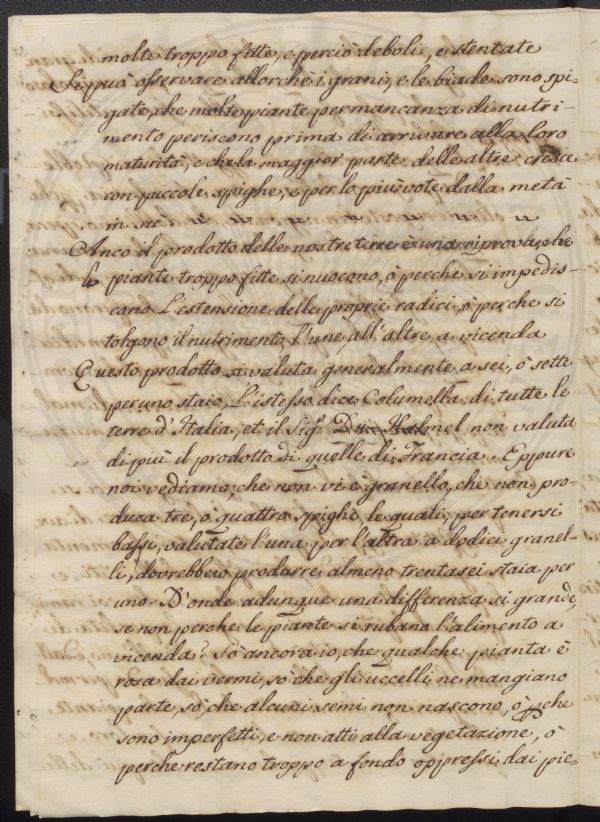 molte troppo fitte, e perciò deboli, e stentate
Si può osservare allorchè i grani, e le biade sono spi-
gate, che molte piante per mancanza di nutri-
mento periscono prima di arrivare alla loro
maturità, e che la maggior parte delle altre cresce
con piccole spighe, e per lo più vote dalla metà
in sù
Anco il prodotto delle nostre terre è una riprova, che
le piante troppo fitte si nuocono, ò perche si impedis-
cono l'estensione delle proprie radici, ò perche si
tolgono il nutrimento l'une all'altre a vicenda
Questo prodotto si valuta generalmente a sei, ò sette
per uno staio, L'istesso dice Columella di tutte le
terre d'Italia, et il Sig.r Du Hamel non valuta
di più il prodotto di quelle di Francia. Eppure
noi vediamo, che non vi è granello, che non pro-
duca tre, o quattro spighe, le quali, per tenersi
bassi, valutate l'una per l'altra a dodici granel-
li, dovrebbero produrre almeno trentasei staia per
uno. D'onde adunque una differenza si grande,
se non perche le piante si rubano l'alimento a
vicenda? Sò ancora io, che qualche pianta è
rosa dai vermi, sò che gli uccelli ne mangiano
parte, sò che alcuni semi non nascono, ò pche
sono imperfetti, e non atti alla vegetazione, ò
perche restano troppo a fondo oppressi dai pie-